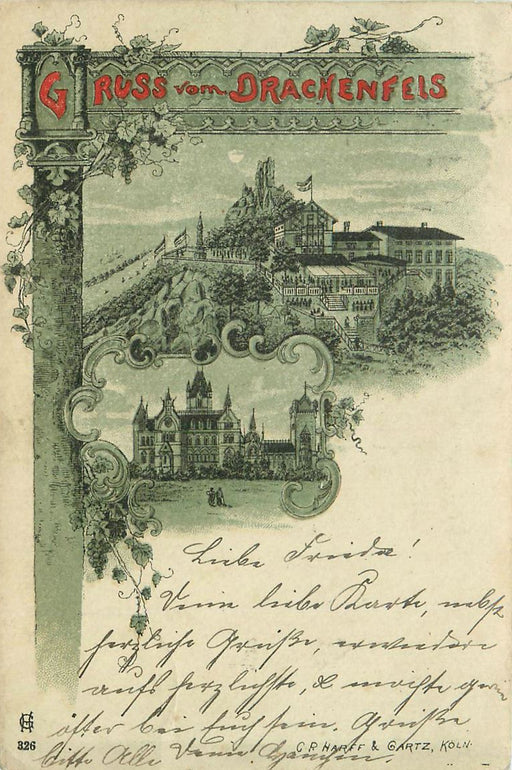 GRUSS vom DRACHENFELS
Liebe Frieda!
Deine liebe Karte, nebst
herzliche Grüße, erwiedere
aufs herzlichste, & möchte gern
öfter bei Euch sein. Grüße
bitte Alle Deine
C.P. HARFF & GARTZ, KÖLN.
326